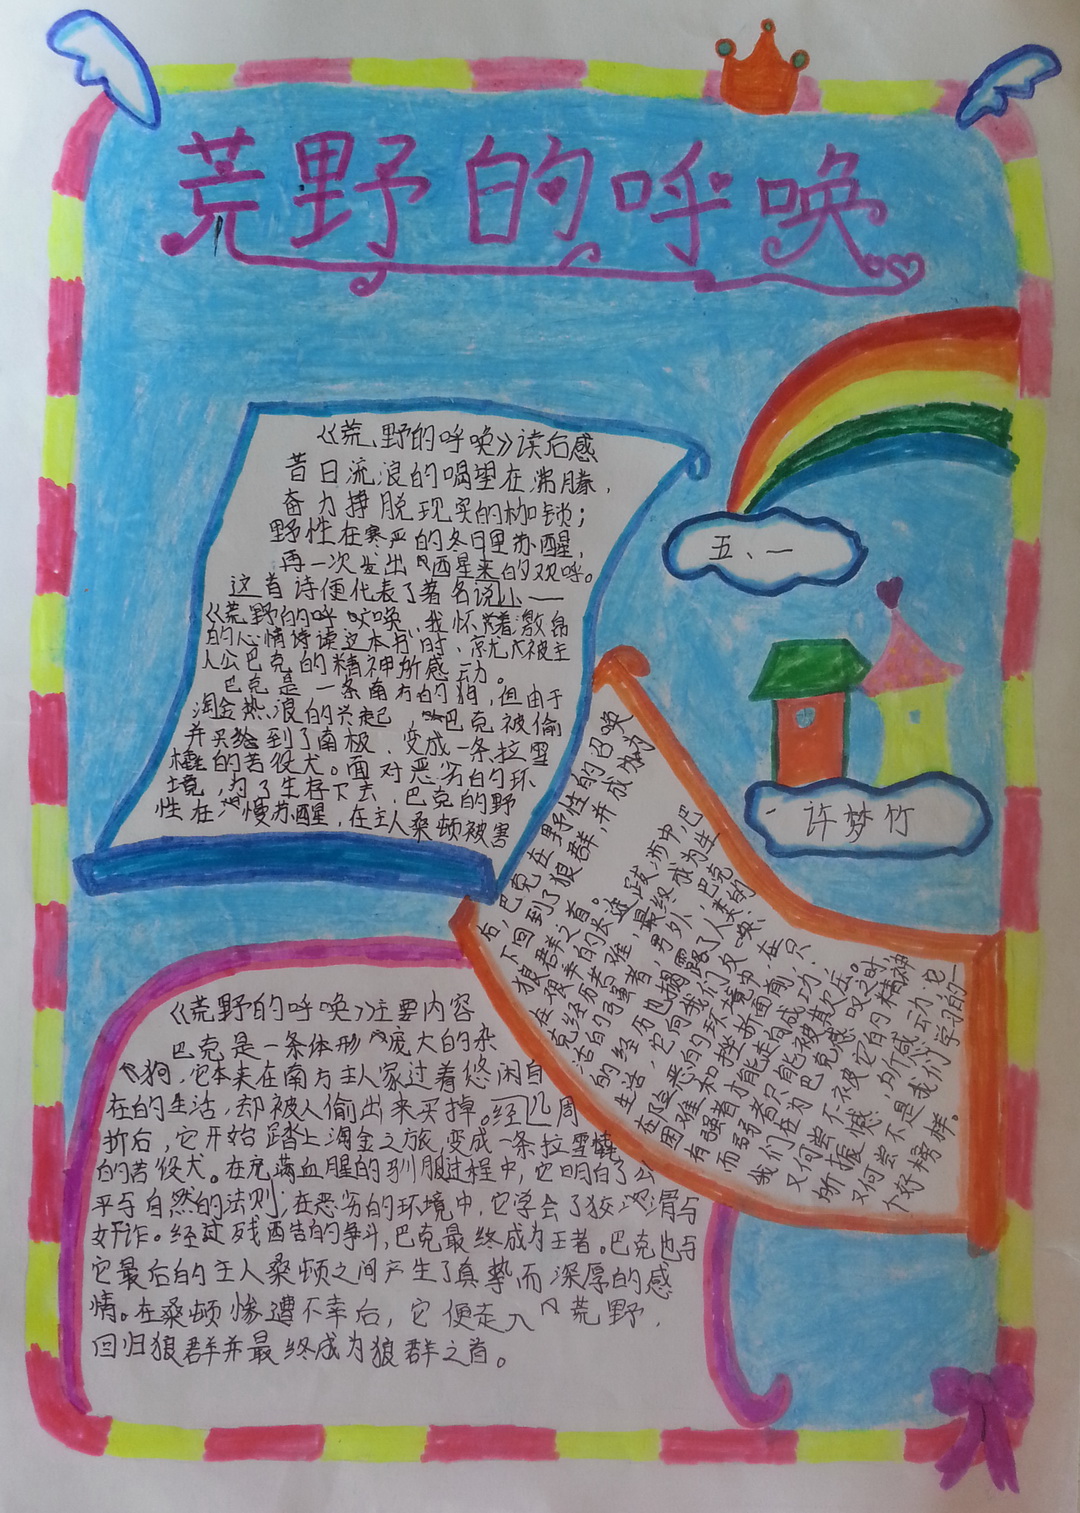 荒野的呼唤
《荒野的呼唤》读后感
昔日流浪的喝望在沸腾，
奋力挣脱现实的枷锁；
野性在寒严的冬日里苏醒，
再一次发出醒来的欢呼。
这首诗便代表了著名说小——
《荒野的呼唤，我怀着激昂
的心情诗读这本书时，京尤被主
人公巴克的精神所感动。
巴克是一条南方的狗，但由于
淘金热浪的兴起，巴克被偷
并买给到了南极，变成一条拉雪
橇的苦役犬。面对恶劣的环
境，为了生存下去，巴克的野
性在慢苏醒，在主人桑顿被害
后，巴克在野性的召唤
下回到了狼群，并成为为
狼群之首。
在漫事的长途跋涉中，巴
克经历苦难，最终成为生
活的弓蛋者，另外，巴克
的经历也揭露了人类的
生活，它向我们欠唤：在
在险恶的环境中，在
困难和挫折面前，只
有强者才能走向成功，
而弱者只能被其欠压。
我们在为巴克感叹之时
又何尝不被它的精神
所振憾，为所感动，它
又何尝不是我们学习的一
个好榜样。
五、一
许梦竹
《荒野的呼唤》主要内容
巴克是一条体形庞大的杂
狗，它本来在南方主人家过着悠闲自
在的生活，却被人偷出来买掉。经几周
折后，它开始踏上淘金之旅，变成一条拉雪橇
的苦役犬。在充满血腥的驯服过程中，它明白了公
平与自然的法则；在恶劣的环境中，它学会了狡滑与
奸诈。经过残酷的争斗，巴克最终成为王者。巴克也与
它最后的主人桑顿之间产生了真挚而深厚的感
情。在桑顿惨遭不幸后，它便走入荒野，
回归狼群并最终成为狼群之首。